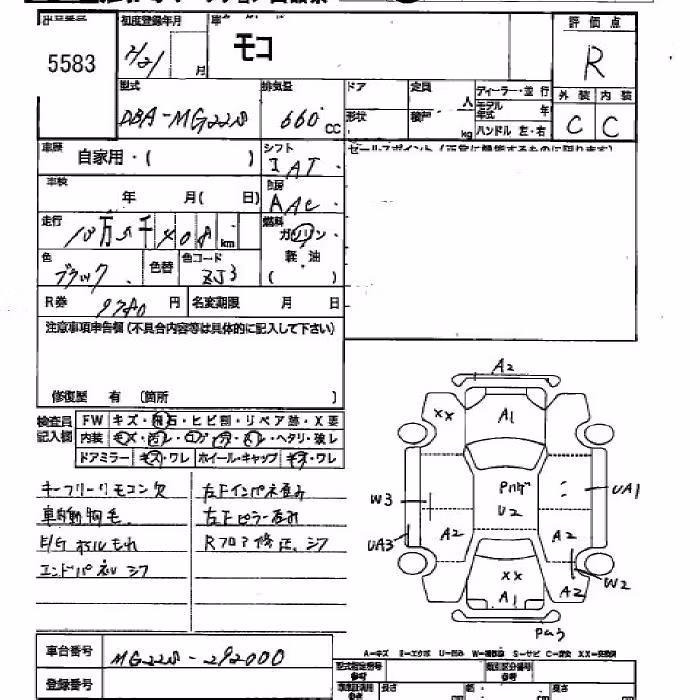 5583
初度登録年月
21/21 月
モコ
評価点
R
型式
DBA-MG22S
排気量
660 cc
ドア
定員
人
形状
積
kg
ディーラー・並行
モデル年式 年
ハンドル 左・右
外装 内装
C C
車歴
自家用・( )
シフト
IAT
車検
年 月( 日)
AAC
走行
10万5千408km
燃料
ガソリン・
軽油
( )
色
ブラック
色替
色コード
ZJ3
R券 9780 円
名変期限 月 日
注意事項申告欄(不具合内容等は具体的に記入して下さい)
修復歴 有 〔箇所 〕
検査員記入欄
FW キズ・飛石・ヒビ割・リペア跡・X要
内装
ヘタリ・破レ
ドアミラー キズ・ワレ ホイール・キャップ キズ・ワレ
キーフリーリモコン欠
左下インパネ歪み
左下ピラー歪み
E/Gオイルもれ
Rフロア修正、シワ
エンドパネルシワ
A2
XX
A1
W3
Pハゲ
U2
UA1
A2
A2
UA3
XX
A1
A2
W2
A=キズ E=エクボ U=凹み W=補修跡 S=サビ C=腐食 XX=交換済
車台番号 MG22S-292000
登録番号
型式指定番号
類別区分番号
長さ
幅
高さ